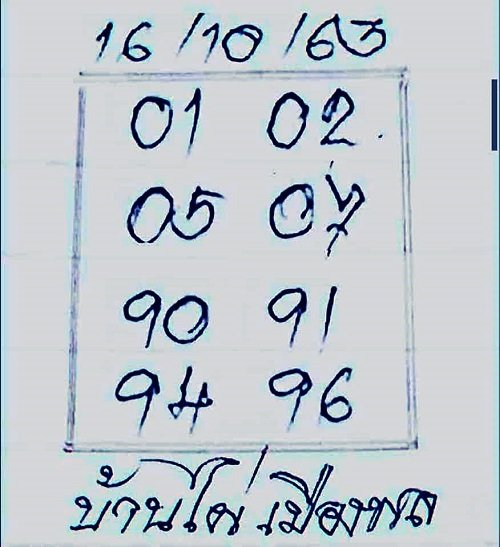 16/10/63
01 02
05 07
90 91
94 96
บ้านไผ่ เมืองพล